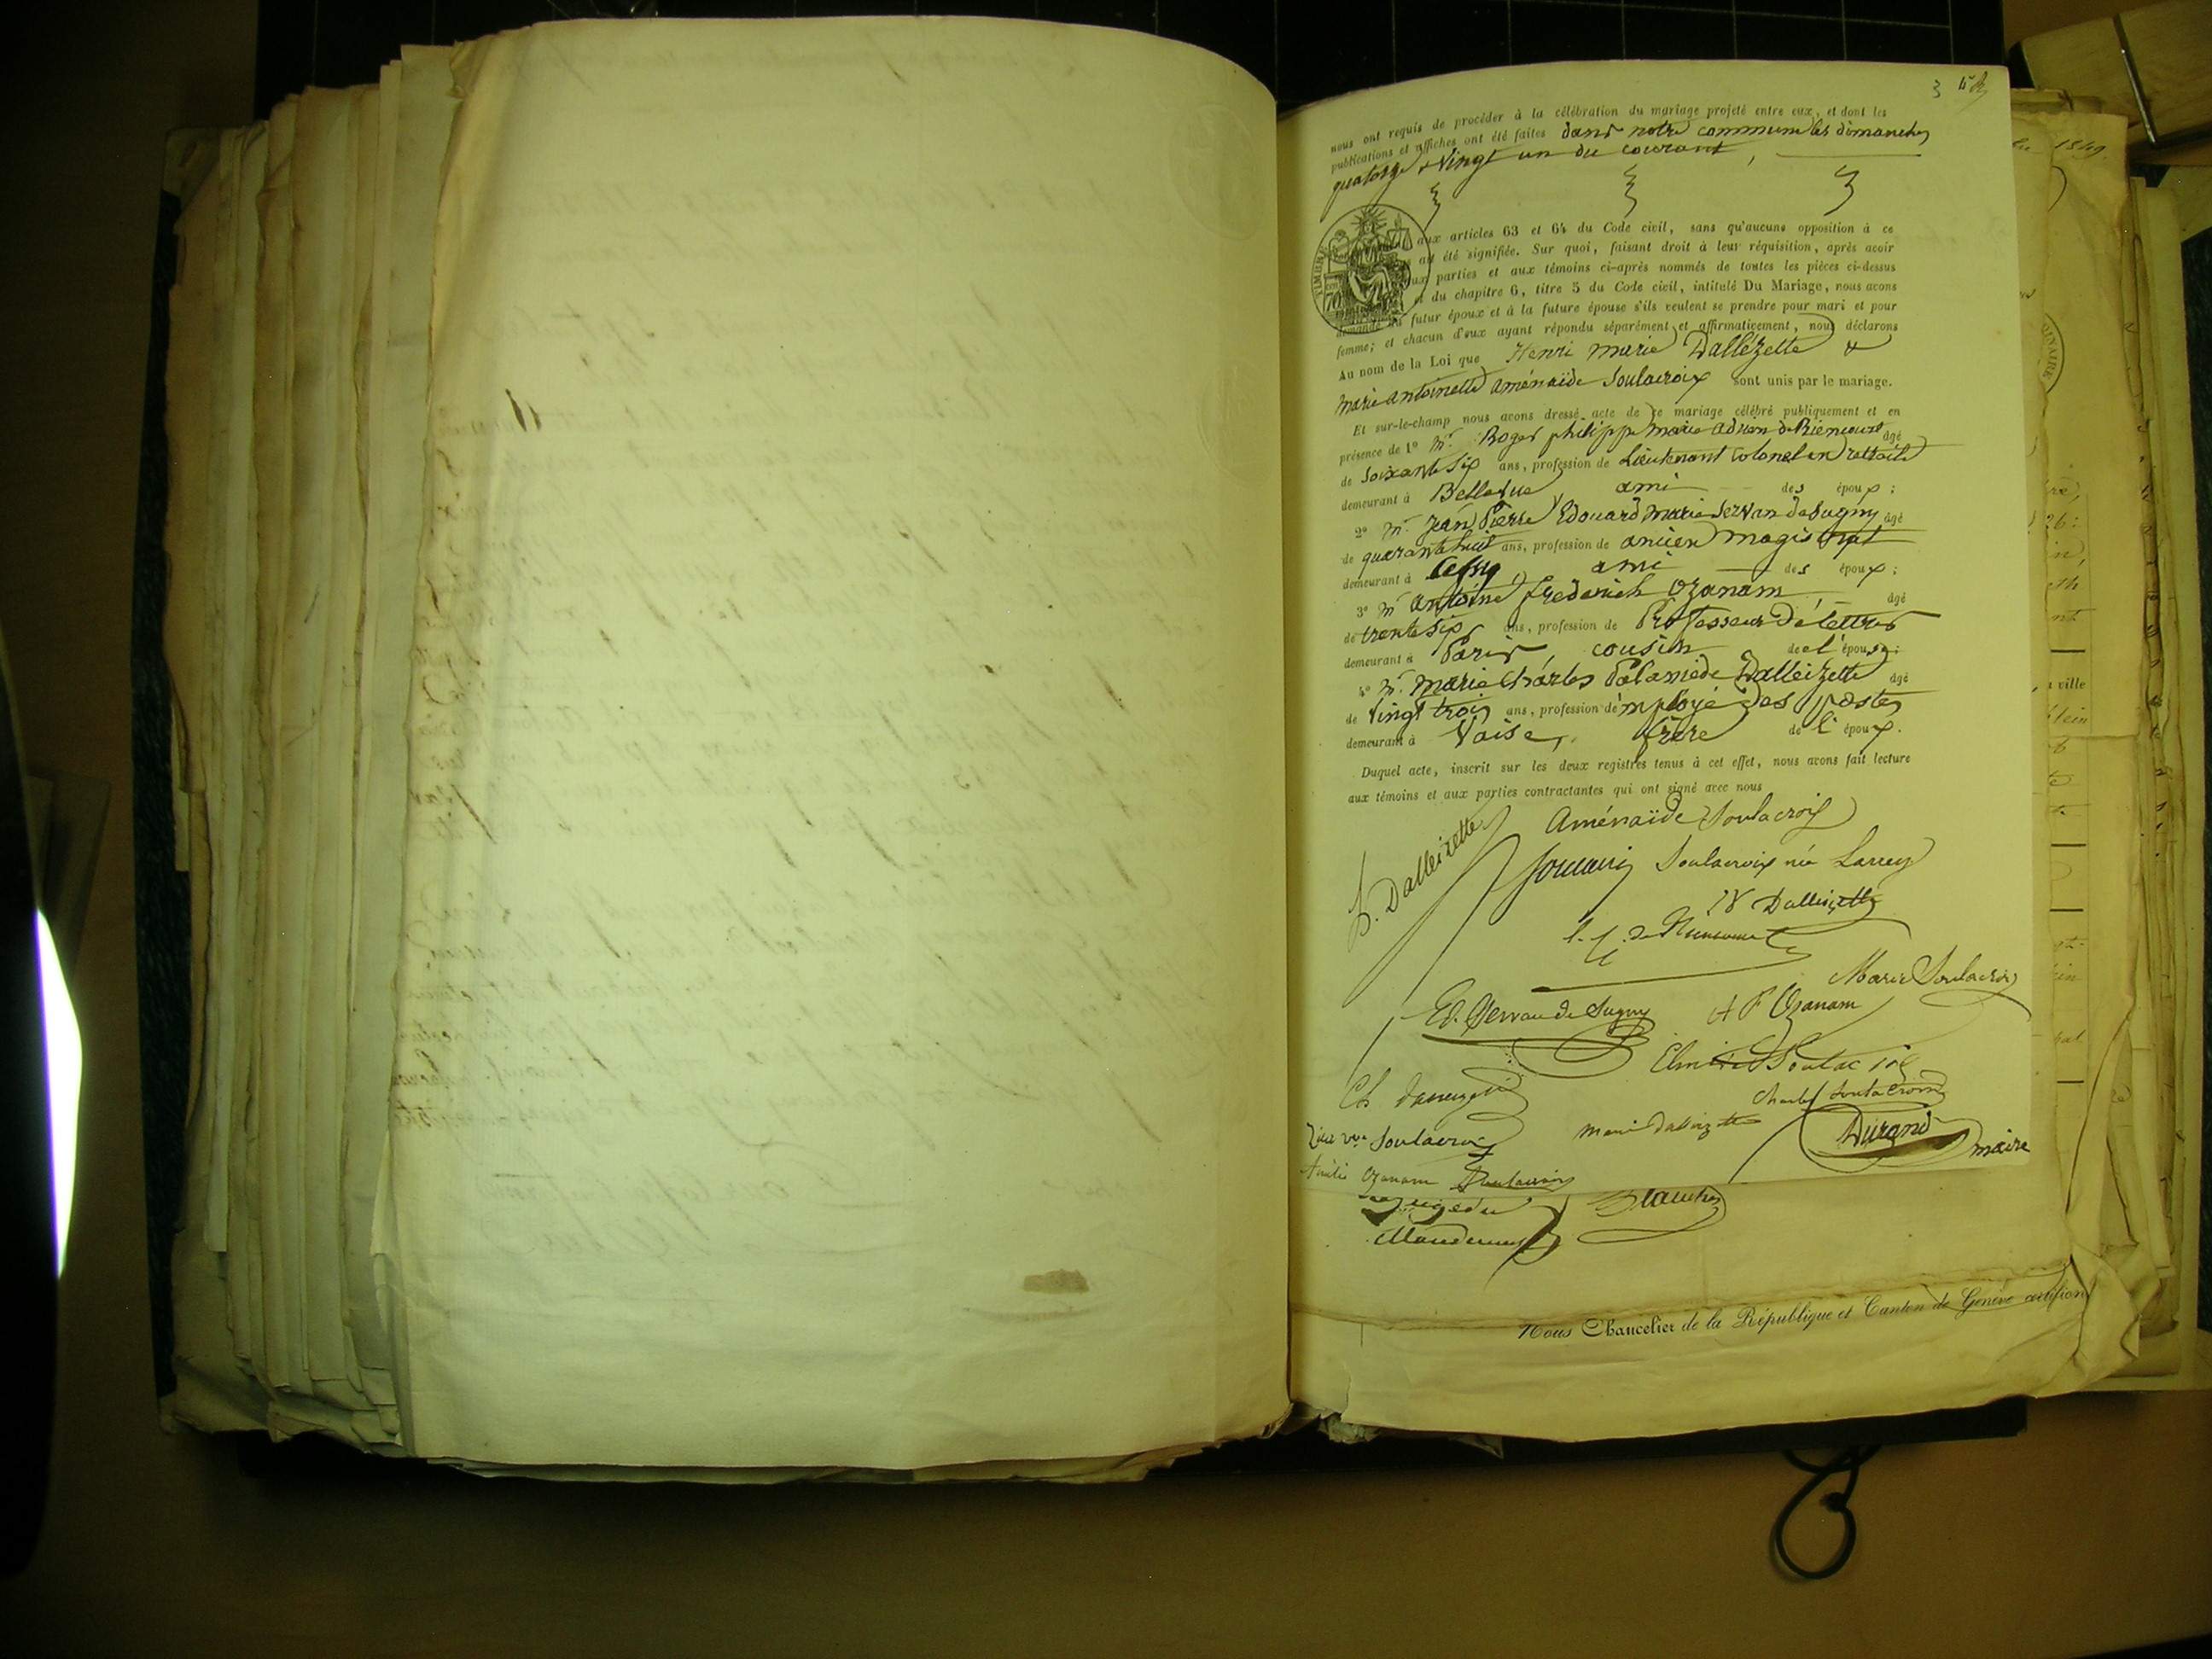 3
nous ont requis de procéder à la célébration du mariage projeté entre eux, et dont les
publications et affiches ont été faites dans notre commune les dimanches
quatorze & Vingt un du courant,
aux articles 63 et 64 du Code civil, sans qu'aucune opposition à ce
ait été signifiée. Sur quoi, faisant droit à leur réquisition, après avoir
aux parties et aux témoins ci-après nommés de toutes les pièces ci-dessus
et du chapitre 6, titre 5 du Code civil, intitulé Du Mariage, nous avons
demandé au futur époux et à la future épouse s'ils veulent se prendre pour mari et pour
femme; et chacun d'eux ayant répondu séparément et affirmativement, nous déclarons
Au nom de la Loi que Henri marie Dallézette &
marie antoinette aménaïde Soulacroix sont unis par le mariage.
TIMBRE
70
Et sur-le-champ nous avons dressé acte de ce mariage célébré publiquement et en
présence de 1° Mr. Roger philippe marie adrien de Riencourt âgé
de soixante six ans, profession de Lieutenant Colonel en retraite
demeurant à Bellevue ami des époux;
2° Mr. Jean Pierre Edouard marie Servan de Sugny âgé
de quarante huit ans, profession de ancien magistrat
demeurant à ami des époux;
3° Mr antoine frederich Ozanam âgé
de trente six ans, profession de Professeur de lettres
demeurant à Paris, cousin de l'épouse;
4° Mr. marie Charles Palamède Dalleizette âgé
de Vingt trois ans, profession d'employé des postes
demeurant à Vaise, frère de l'époux.
Duquel acte, inscrit sur les deux registres tenus à cet effet, nous avons fait lecture
aux témoins et aux parties contractantes qui ont signé avec nous
Aménaïde Soulacroix
Dalleizette
Soulacroix née
Dalleizette
de Riencourt
Marie Soulacroix
Ed. Servan de Sugny
A F Ozanam
Charles Soulacroix
Soulacroix
marie Dalleizette
Durand maire
Amélie Ozanam Soulacroix
Nous Chancelier de la République et Canton de Genève certifions
1849